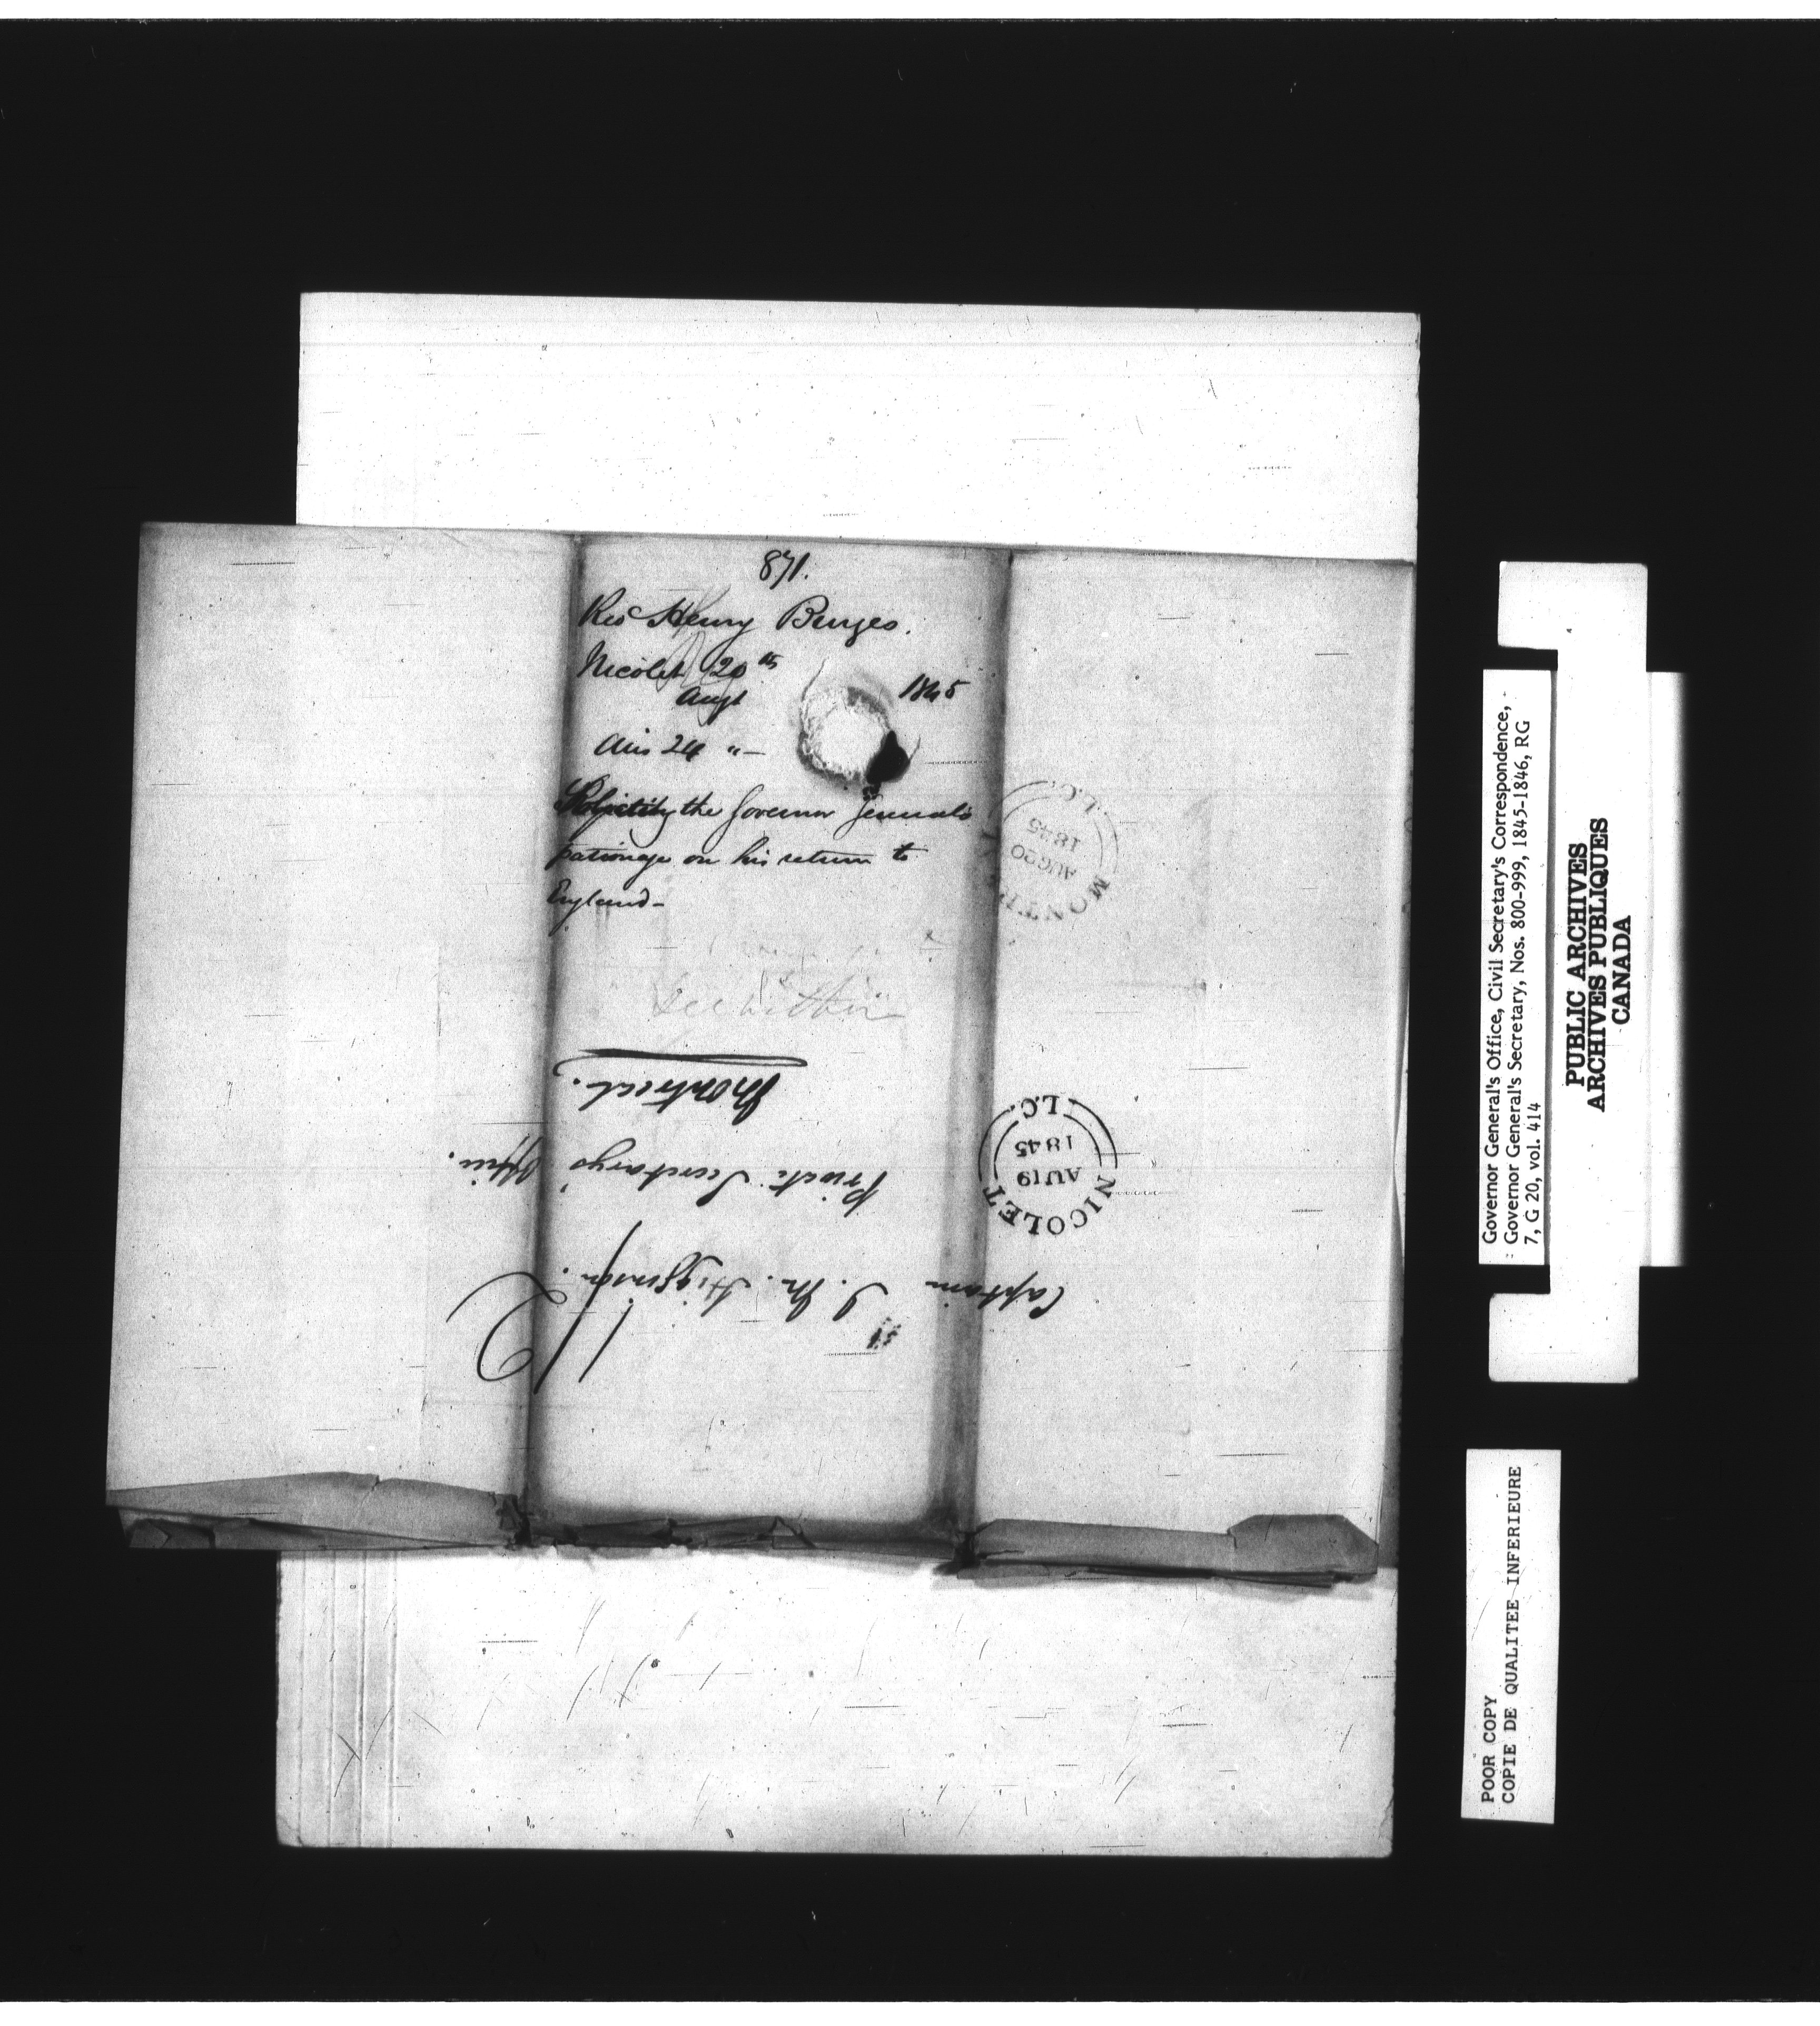 871.
Revd Henry Burges.
Nicolet 20th
Augt 1845
Ans 24 "—
the Governor General's
patronage on his return to
England—
See within
MONT
AUG 20
1845
L.C.
Captain J. M. Higginson.
Private Secretary's Office.
Montreal.
NICOLET
AU 19
1845
L.C.
Governor General's Office, Civil Secretary's Correspondence,
Governor General's Secretary, Nos. 800-999, 1845-1846, RG
7, G 20, vol. 414
PUBLIC ARCHIVES
ARCHIVES PUBLIQUES
CANADA
POOR COPY
COPIE DE QUALITEE INFERIEURE